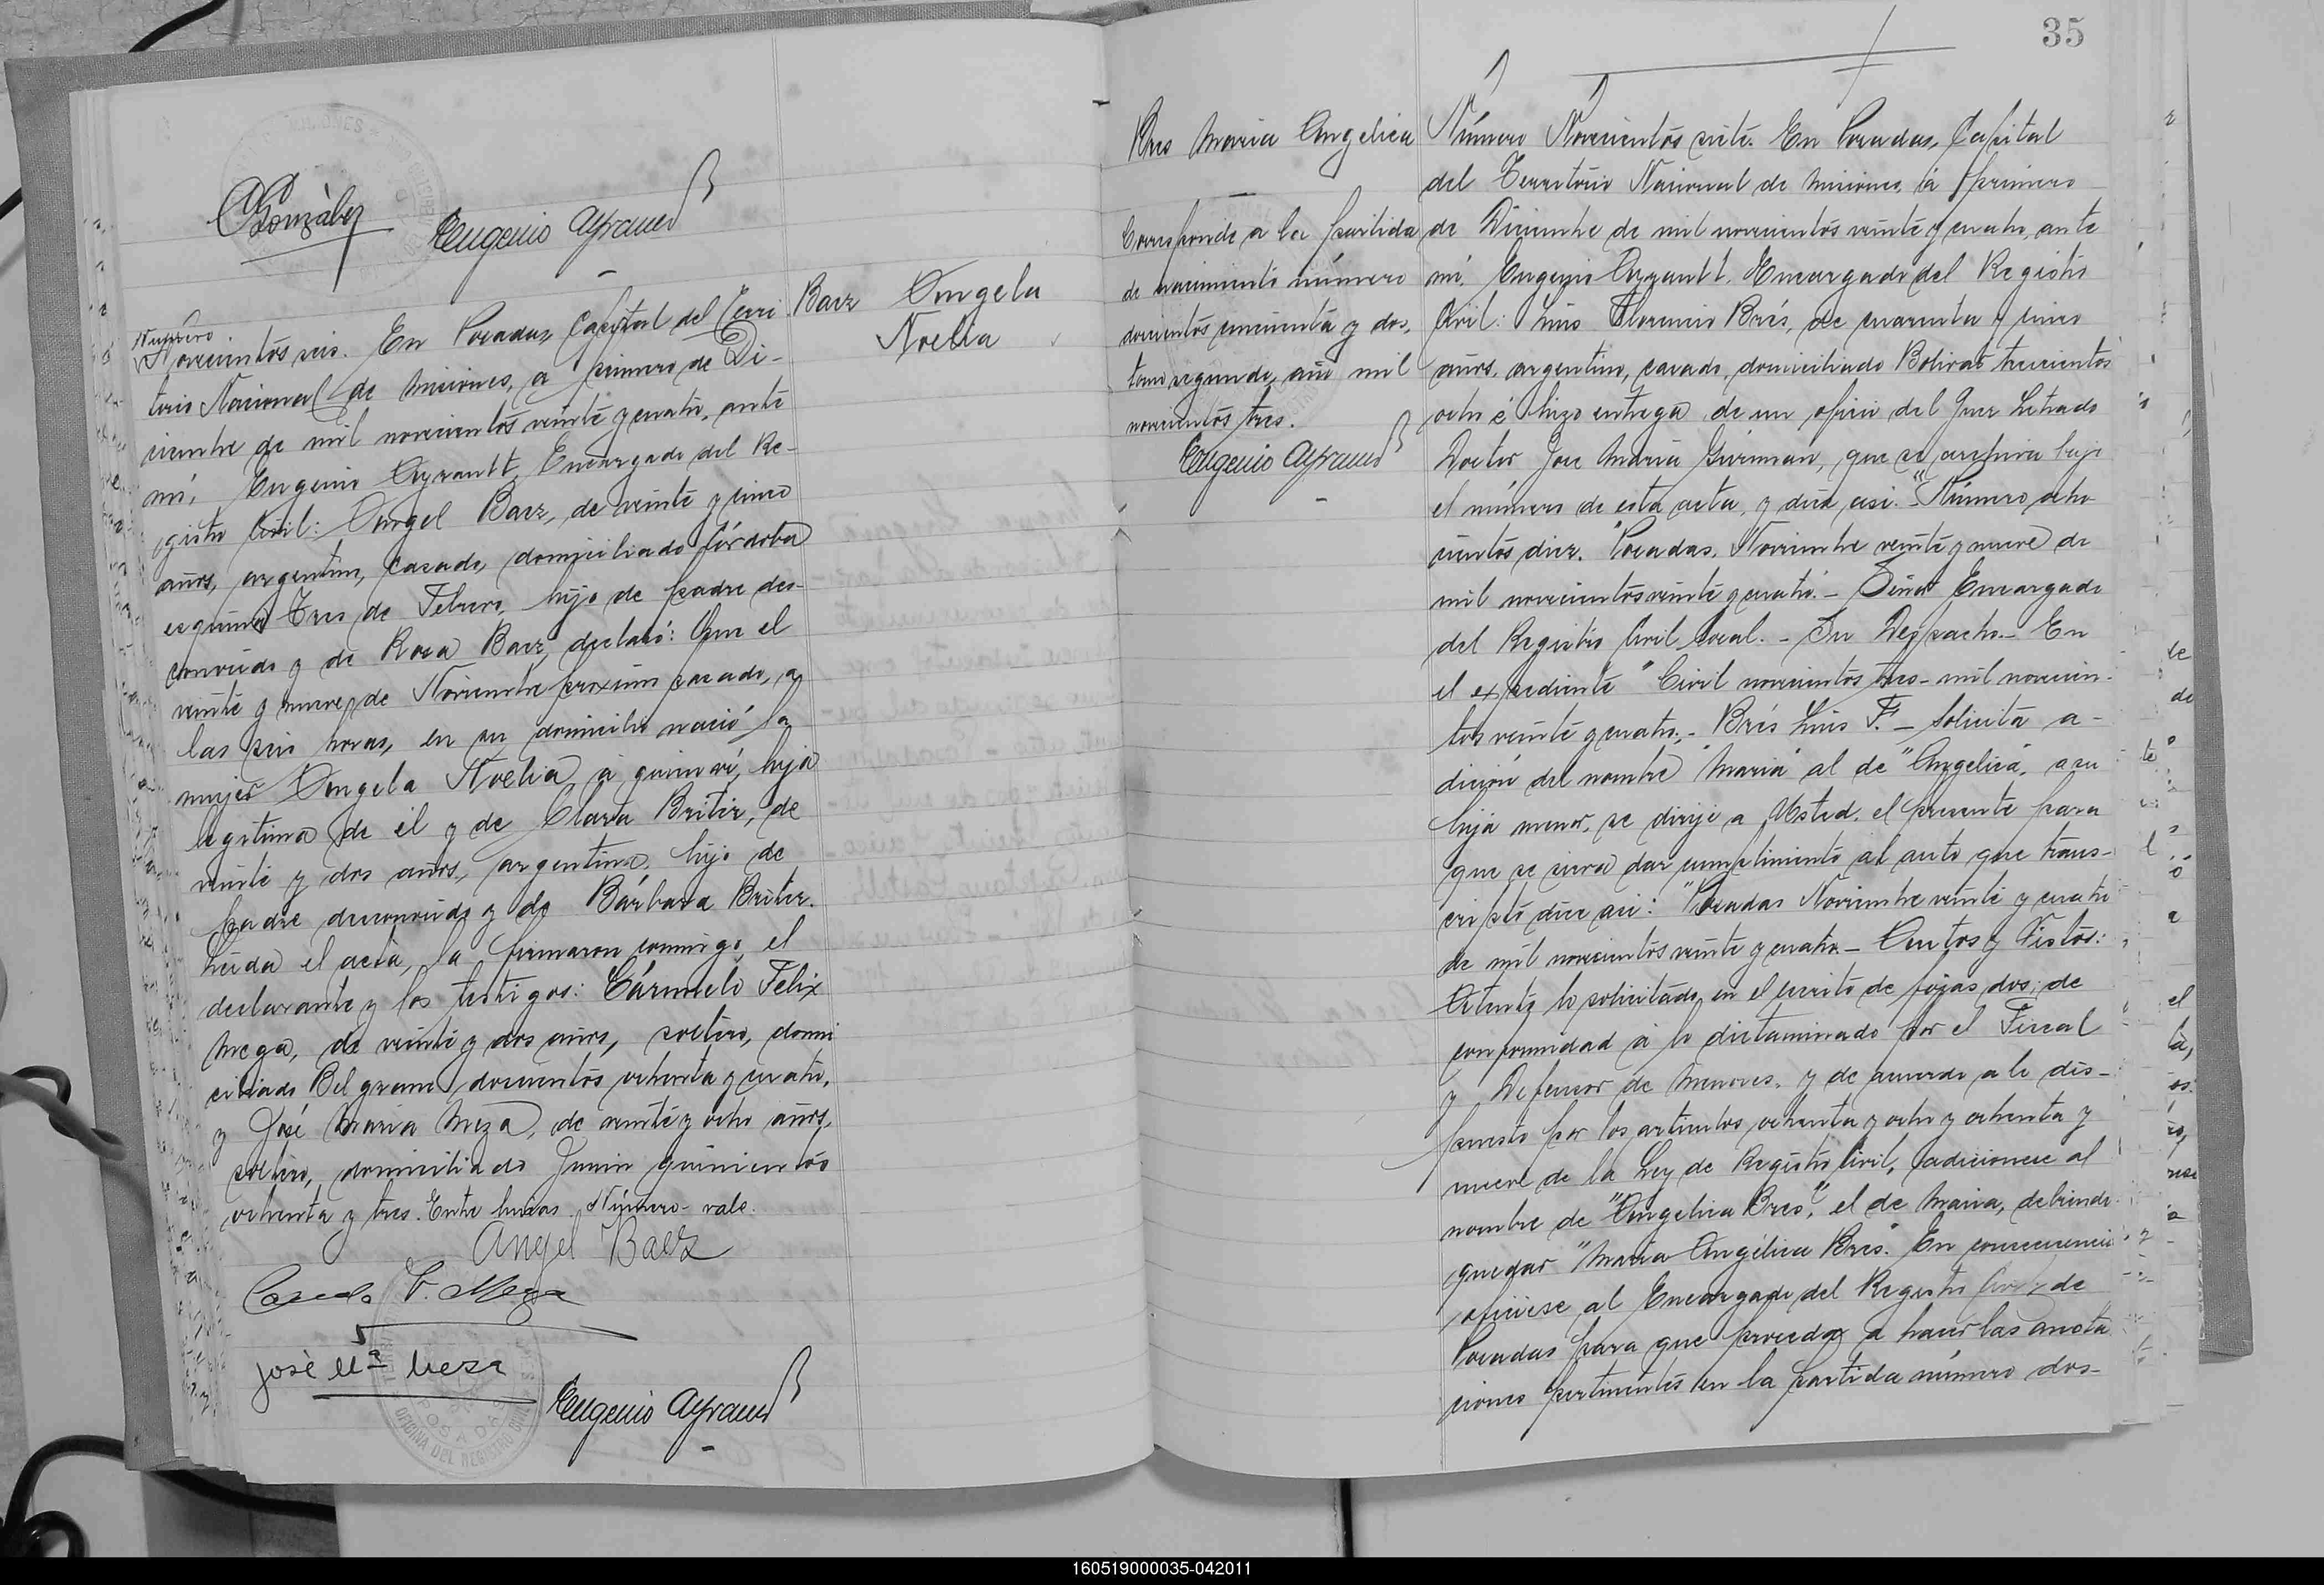 González
Eugenio Ayrault
Número
Novecientos seis. En Posadas, Capital del Terri-
Baez Angela
Noelia
torio Nacional de Misiones, a primero de Di-
ciembre de mil novecientos veinte y cuatro, ante
mí, Eugenio Ayrault, Encargado del Re-
gistro Civil: Angel Baez, de veinte y cinco
años, argentino, casado, domiciliado Córdoba
esquina Tres de Febrero, hijo de padre des-
conocido y de Rosa Baez, declaró: Que el
veinte y nueve de Noviembre próximo pasado, a
las seis horas, en su domicilio nació la
mujer Angela Noelia, a quien ví, hija
legítima de él y de Clara Britez, de
veinte y dos años, argentina, hija de
padre desconocido y de Bárbara Britez.
Leída el acta, la firmaron conmigo, el
declarante y los testigos: Cármelo Felix
Meza, de veinte y dos años, soltero, domi
ciliado Belgrano doscientos ochenta y cuatro,
y José María Meza, de veinte y ocho años,
soltero, domiciliado Junin quinientos
ochenta y tres. Entre líneas Número- vale.
Angel Baez
F. Meza
José Ma Meza
Eugenio Ayrault
POSADAS
OFICINA DEL REGISTRO CIVIL
35
Bres María Angelica
Corresponde a la partida
de nacimiento número
doscientos cincuenta y dos,
tomo segundo, año mil
novecientos tres.
Eugenio Ayrault
Número Novecientos siete. En Posadas, Capital
del Territorio Nacional de Misiones, a primero
de Diciembre de mil novecientos veinte y cuatro, ante
mí, Eugenio Ayrault, Encargado del Registro
Civil: Luis Florencio Brés, de cuarenta y cinco
años, argentino, casado, domiciliado Bolivar trescientos
ocho é hizo entrega de un oficio del Juez Letrado
Doctor Jose María que se archiva bajo
el número de esta acta, y dice asi: "Número ocho
cientos diez. Posadas, Noviembre veinte y nueve de
mil novecientos veinte y cuatro.- Señor Encargado
del Registro Civil local.- Su Despacho.- En
el expediente "Civil novecientos tres- mil novecien-
tos veinte y cuatro,- Brés Luis F.- solicita a-
dición del nombre "María" al de "Angelica", a su
hija menor, se dirije a Usted, el presente para
que se sirva dar cumplimiento al auto que trans-
cripto dice asi: "Posadas Noviembre veinte y cuatro
de mil novecientos veinte y cuatro- Autos y Vistos:
Atento lo solicitado en el escrito de fojas dos; de
conformidad a lo dictaminado por el Fiscal
y Defensor de Menores, y de acuerdo a lo dis-
puesto por los articulos ochenta y ocho y ochenta y
nueve de la Ley de Registro Civil, adicionese al
nombre de "Angelica Bres", el de Maria, debiendo
quedar "Maria Angélica Brés". En consecuencia
ofíciese al Encargado del Registro Civil de
Posadas para que proceda a hacer las anota
ciones pertinentes en la partida número dos-
160519000035-042011